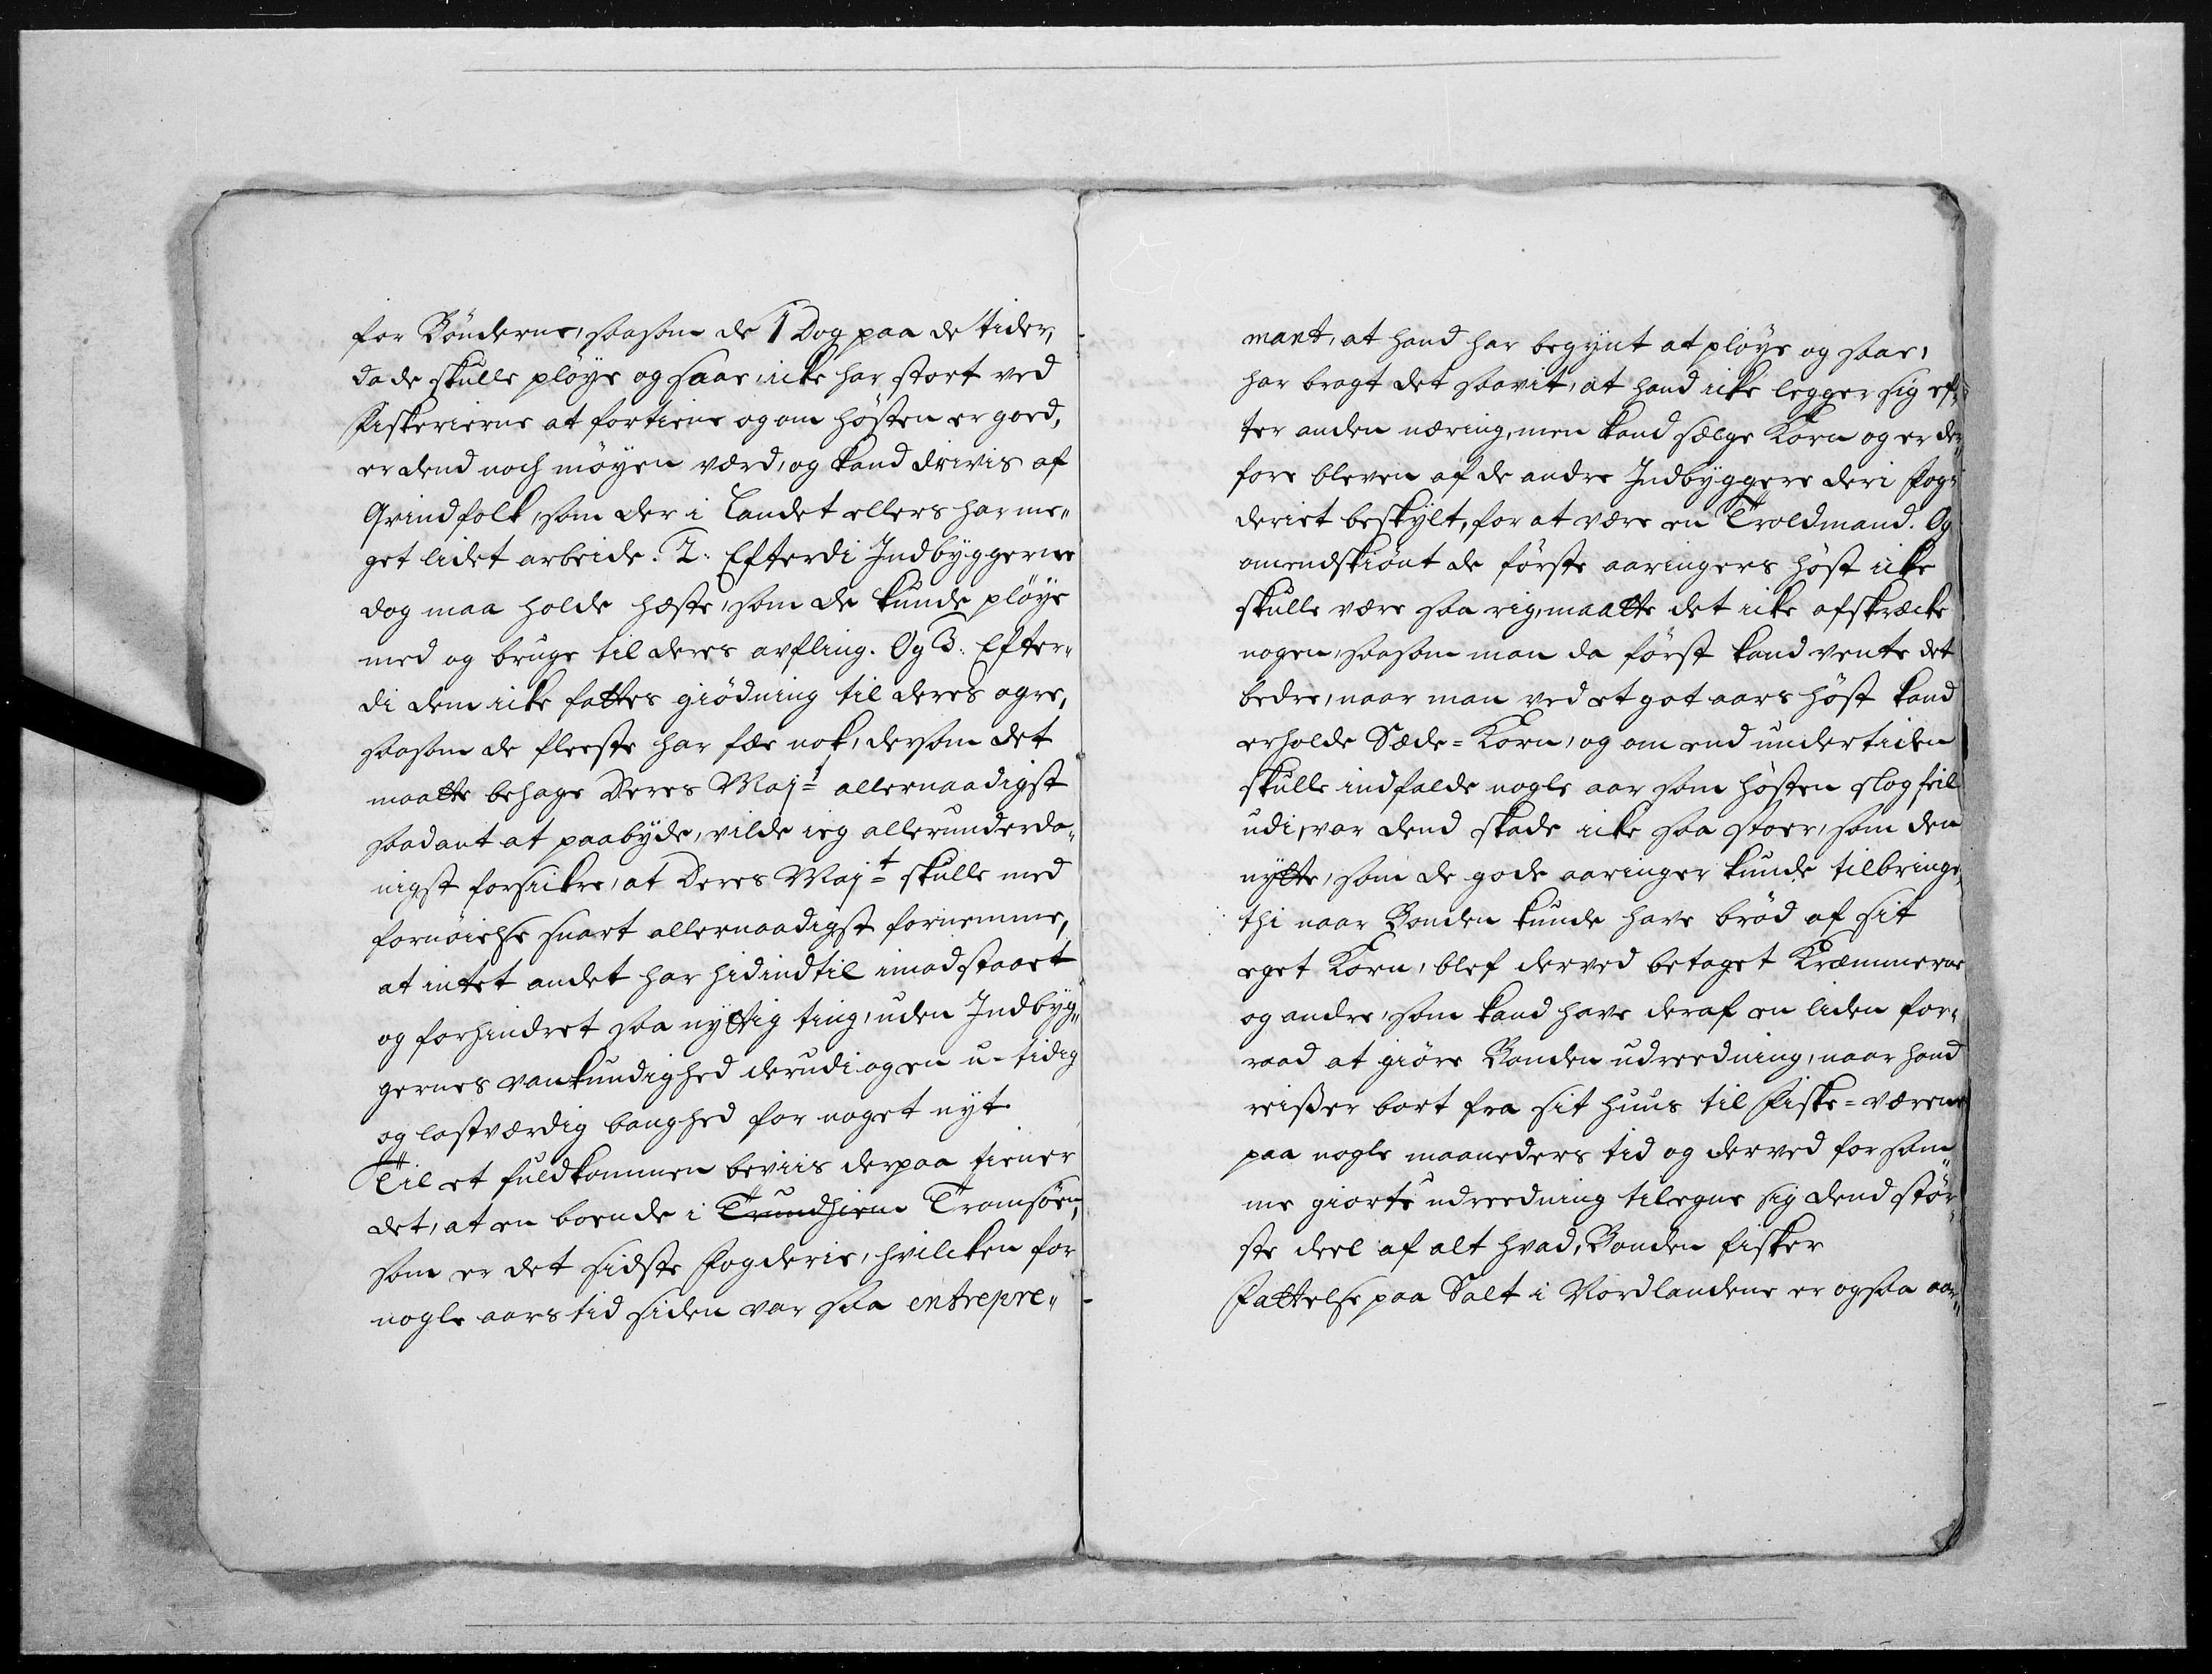 for Bønderne, saasom de 1 Dog paa de tider,
da de skulle pløye og saae, icke har stort ved
Fiskerierne at fortiene og om høsten er goed,
er dend noch møyen værd, og kand drivis af
Qvindfolk, som der i Landet ellers har me„
get lidet arbeide. 2. Efterdi Indbyggerne
dog maa holde hæste, som de kunde pløye
med og bruge til deres avfling. Og 3. Efter„
di dem icke fattes giødning til deres agre,
saasom de fleeste har fæe nok, dersom det
maatte behage Deres Majt allernaadigst
saadant at paabyde, vilde ieg allerunderda„
nigst forsickre, at Deres Majt skulle med
fornøielse snart allernaadigst fornemme,
at intet andet har hidindtil imodstaaet
og forhindret saa nyttig ting, uden Indbyg„
gernes vankundighed derudi og en u-tidig
og lastværdig banghed for noget nyt.
Til et fuldkommen beviis derpaa tiener
det, at en boende i Trundhiem Tromsøen,
som er det sidste fogderie, hvilcken for
nogle aars tid siden var saa entrepre„
mant, at hand har begynt at pløye og saae,
har bragt det saavit, at hand icke legger sig ef„
ter anden næring, men kand sælge Korn og er der„
fore bleven af de andre Indbyggere der i fog„
deriet beskylt, for at være en Troldmand. Og
omendskiønt de første aaringers høst icke
skulle være saa rig, maatte det icke afskræcke
nogen, saasom man da først kand vente det
bedre, naar man ved et got aars høst kand
erholde Sæde=Korn, og om end undertiden
skulle indfalde nogle aar som høsten slog feil
udi, var dend skade icke saa stoer, som den
nytte, som de gode aaringer kunde tilbringe,
thi naar Bonden kunde have brød af sit
eget Korn, blef derved betaget Kræmmerne
og andre, som kand have deraf en liden for„
raad at giøre Bonden udreedning, naar hand
reiser bort fra sit huus til Fiske=værene
paa nogle maaneders tid og derved for sam„
me giorte udreedning tilegne sig dend stør„
ste deel af alt hvad, Bonden fisker
Fattelse paa Salt i Nordlandene er ogsaa aar„